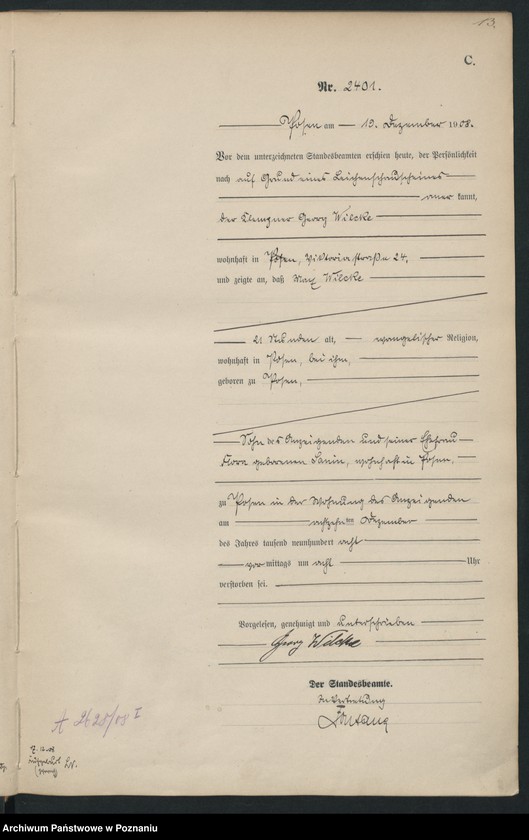 13.
C.
Nr. 2401.
Posen am 19. Dezember 1908.
Vor dem unterzeichneten Standesbeamten erschien heute, der Persönlichkeit
nach auf Grund eines Leichenschauscheines
anerkannt,
der Klempner Georg Wilcke
wohnhaft in Posen, Viktoriastraße 24.
und zeigte an, daß Max Wilcke
21 Stunden alt, evangelischer Religion,
wohnhaft in Posen, bei ihm,
geboren zu Posen,
Sohn des Anzeigenden und seiner Ehefrau
Flora geborenen Hanin, wohnhaft in Posen.
zu Posen in der Wohnung des Anzeigenden
am achtzehnten Dezember
des Jahres tausend neunhundert acht
vormittags um acht Uhr
verstorben sei.
Vorgelesen, genehmigt und unterschrieben
Georg Wilcke
Der Standesbeamte.
In Vertretung
A 2628/08 I
Archiwum Państwowe w Poznaniu